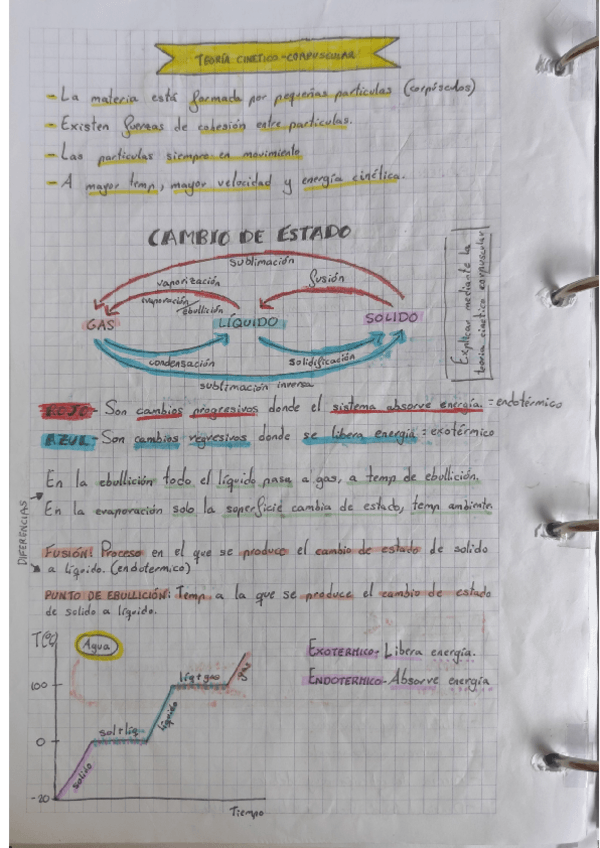 TEORÍA CINETICO-CORPUSCULAR
- La materia está formada por pequeñas particulas (corpúsculos)
- Existen fuerzas de cohesión entre particulas.
- Las particulas siempre en movimiento
- A mayor temp, mayor velocidad y energía cinética.
CAMBIO DE ESTADO
sublimación
vaporización
fusión
evaporación
ebullición
GAS
LÍQUIDO
SOLIDO
condensación
solidificación
sublimación inversa
Explicar mediante la
teoria cinetico corpuscular
ROJO - Son cambios progresivos donde el sistema absorve energía. = endotérmico
AZUL - Son cambios regresivos donde se libera energia = exotérmico
DIFERENCIAS
En la ebullición todo el líquido pasa a gas, a temp de ebullición.
En la evaporación solo la superficie cambia de estado, temp ambiente
FUSIÓN: Proceso en el que se produce el cambio de estado de solido
a líquido. (endotermico)
PUNTO DE EBULLICIÓN: Temp a la que se produce el cambio de estado
de solido a líquido.
T(ºC)
Agua
100
0
-20
solido
sol+líq
líquido
líq+gas
gas
Tiempo
EXOTERMICO- Libera energía.
ENDOTERMICO- Absorve energía